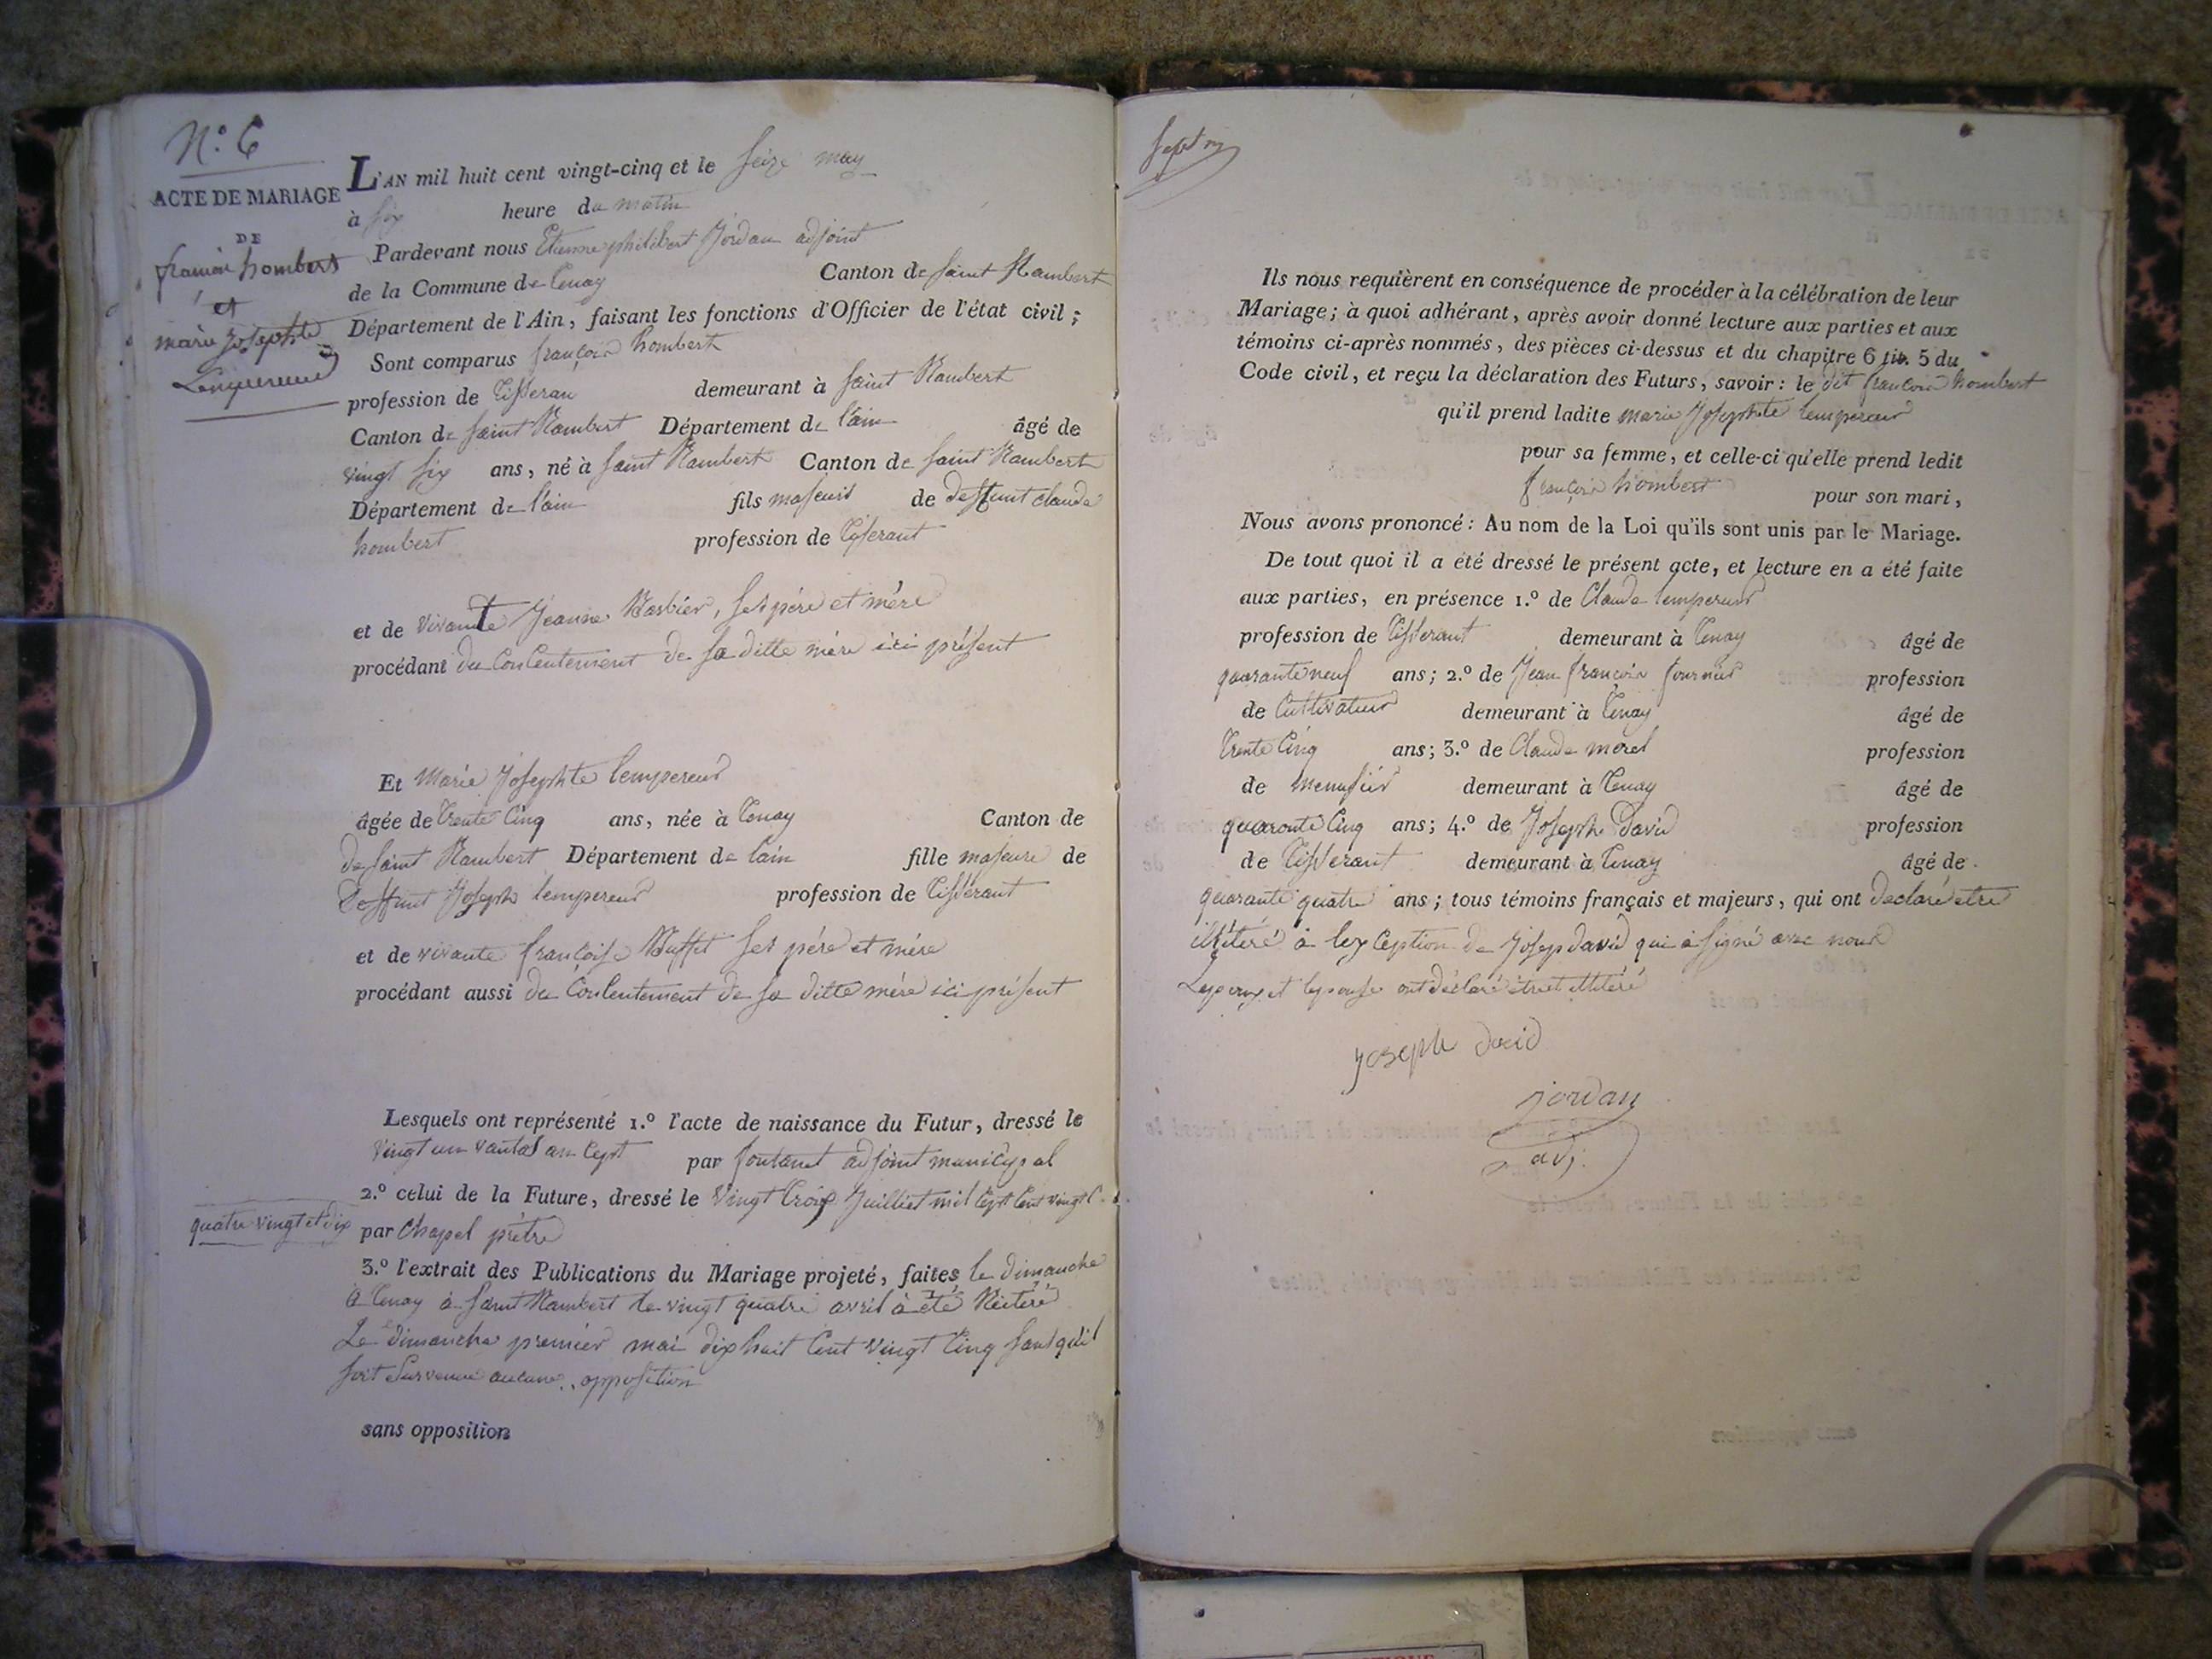 N.º 6
ACTE DE MARIAGE
DE
françois hombert
et
marie Josephte
Lempereur
L'AN mil huit cent vingt-cinq et le seize may
à six heure du matin
Pardevant nous Etienne philibert Jordan adjoint
de la Commune de Tenay Canton de saint Rambert
Département de l'Ain, faisant les fonctions d'Officier de l'état civil;
Sont comparus françois hombert
profession de Tisseran demeurant à saint Rambert
Canton de saint Rambert Département de l'ain âgé de
vingt six ans, né à saint Rambert Canton de saint Rambert
Département de l'ain fils majeur de deffunt claude
hombert profession de Tisserant
et de vivante Jeanne Barbier, ses pére et mére
procédant du Consentement de sa ditte mére ici présent
Et Marie Josephte lempereur
âgée de Trente Cinq ans, née à Tenay Canton de
de saint Rambert Département de lain fille majeure de
Deffunt Joseph lempereur profession de Tisserant
et de vivante françoise Buffet ses pére et mére
procédant aussi du Consentement de sa ditte mére ici présent
Lesquels ont représenté 1.º l'acte de naissance du Futur, dressé le
vingt un vantos an Sept par fontanet adjoint municypal
2.º celui de la Future, dressé le Vingt Trois Juilliet mil Sept Cent
quatre vingt et dix
par Chapel prêtre
3.º l'extrait des Publications du Mariage projeté, faites le dimanche
à Tenay à saint Rambert le vingt quatre avril à été Réitéré
Le dimanche premier mai dix huit Cent vingt Cinq sans quil
soit Survenue aucune opposition
sans opposition
Sept
Ils nous requièrent en conséquence de procéder à la célébration de leur
Mariage; à quoi adhérant, après avoir donné lecture aux parties et aux
témoins ci-après nommés, des pièces ci-dessus et du chapitre 6 tit. 5 du
Code civil, et reçu la déclaration des Futurs, savoir: le dit françois hombert
qu'il prend ladite marie Josephte lempereur
pour sa femme, et celle-ci qu'elle prend ledit
françois hombert pour son mari,
Nous avons prononcé: Au nom de la Loi qu'ils sont unis par le Mariage.
De tout quoi il a été dressé le présent acte, et lecture en a été faite
aux parties, en présence 1.º de Claude lempereur
profession de Tisserant demeurant à Tenay âgé de
quarante neuf ans; 2.º de Jean françois fournier profession
de Cultivateur demeurant à Tenay âgé de
Trente Cinq ans; 3.º de Claude morel profession
de menusier demeurant à Tenay âgé de
quarante Cinq ans; 4.º de Joseph David profession
de Tisserant demeurant à Tenay âgé de
quarante quatre ans; tous témoins français et majeurs, qui ont declaré etre
illitéré à lexception de Josep david qui à signé avec nous
Lepoux et lepouse ont déclaré être illitéré
joseph david
jordan
adj.